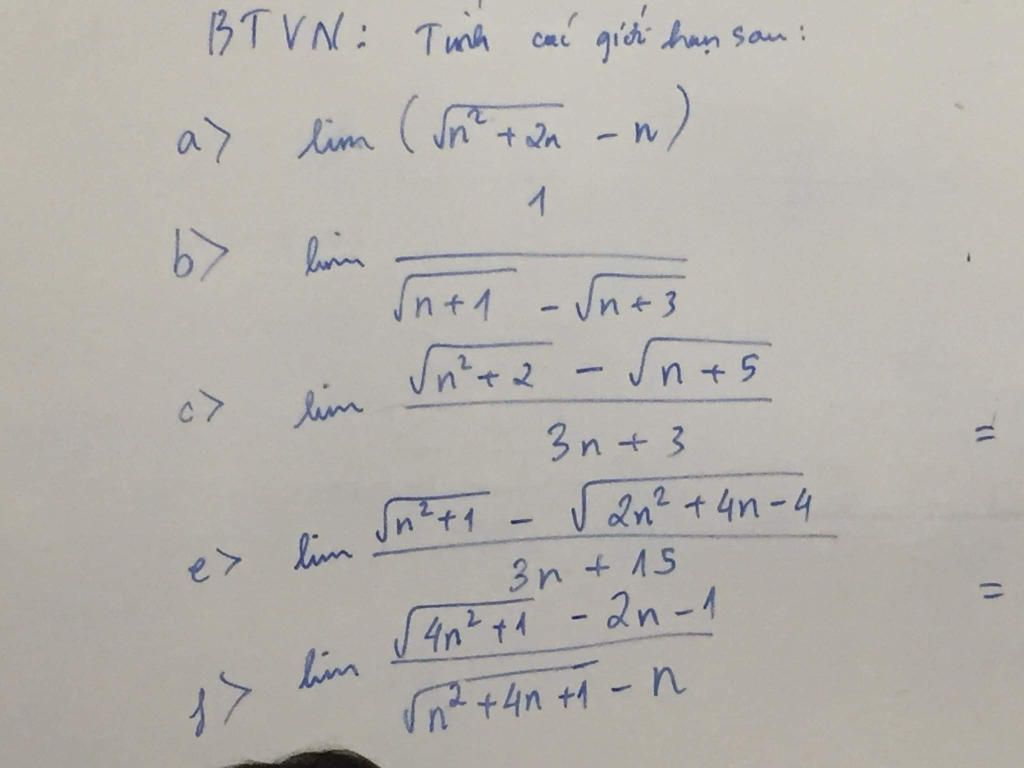 BTVN: Tính các giới hạn sau:
a> lim (√(n² + 2n) - n)
b> lim 1 / (√(n+1) - √(n+3))
c> lim (√(n²+2) - √(n+5)) / (3n + 3) =
e> lim (√(n²+1) - √(2n²+4n-4)) / (3n + 15) =
f> lim (√(4n²+1) - 2n - 1) / (√(n²+4n+1) - n)